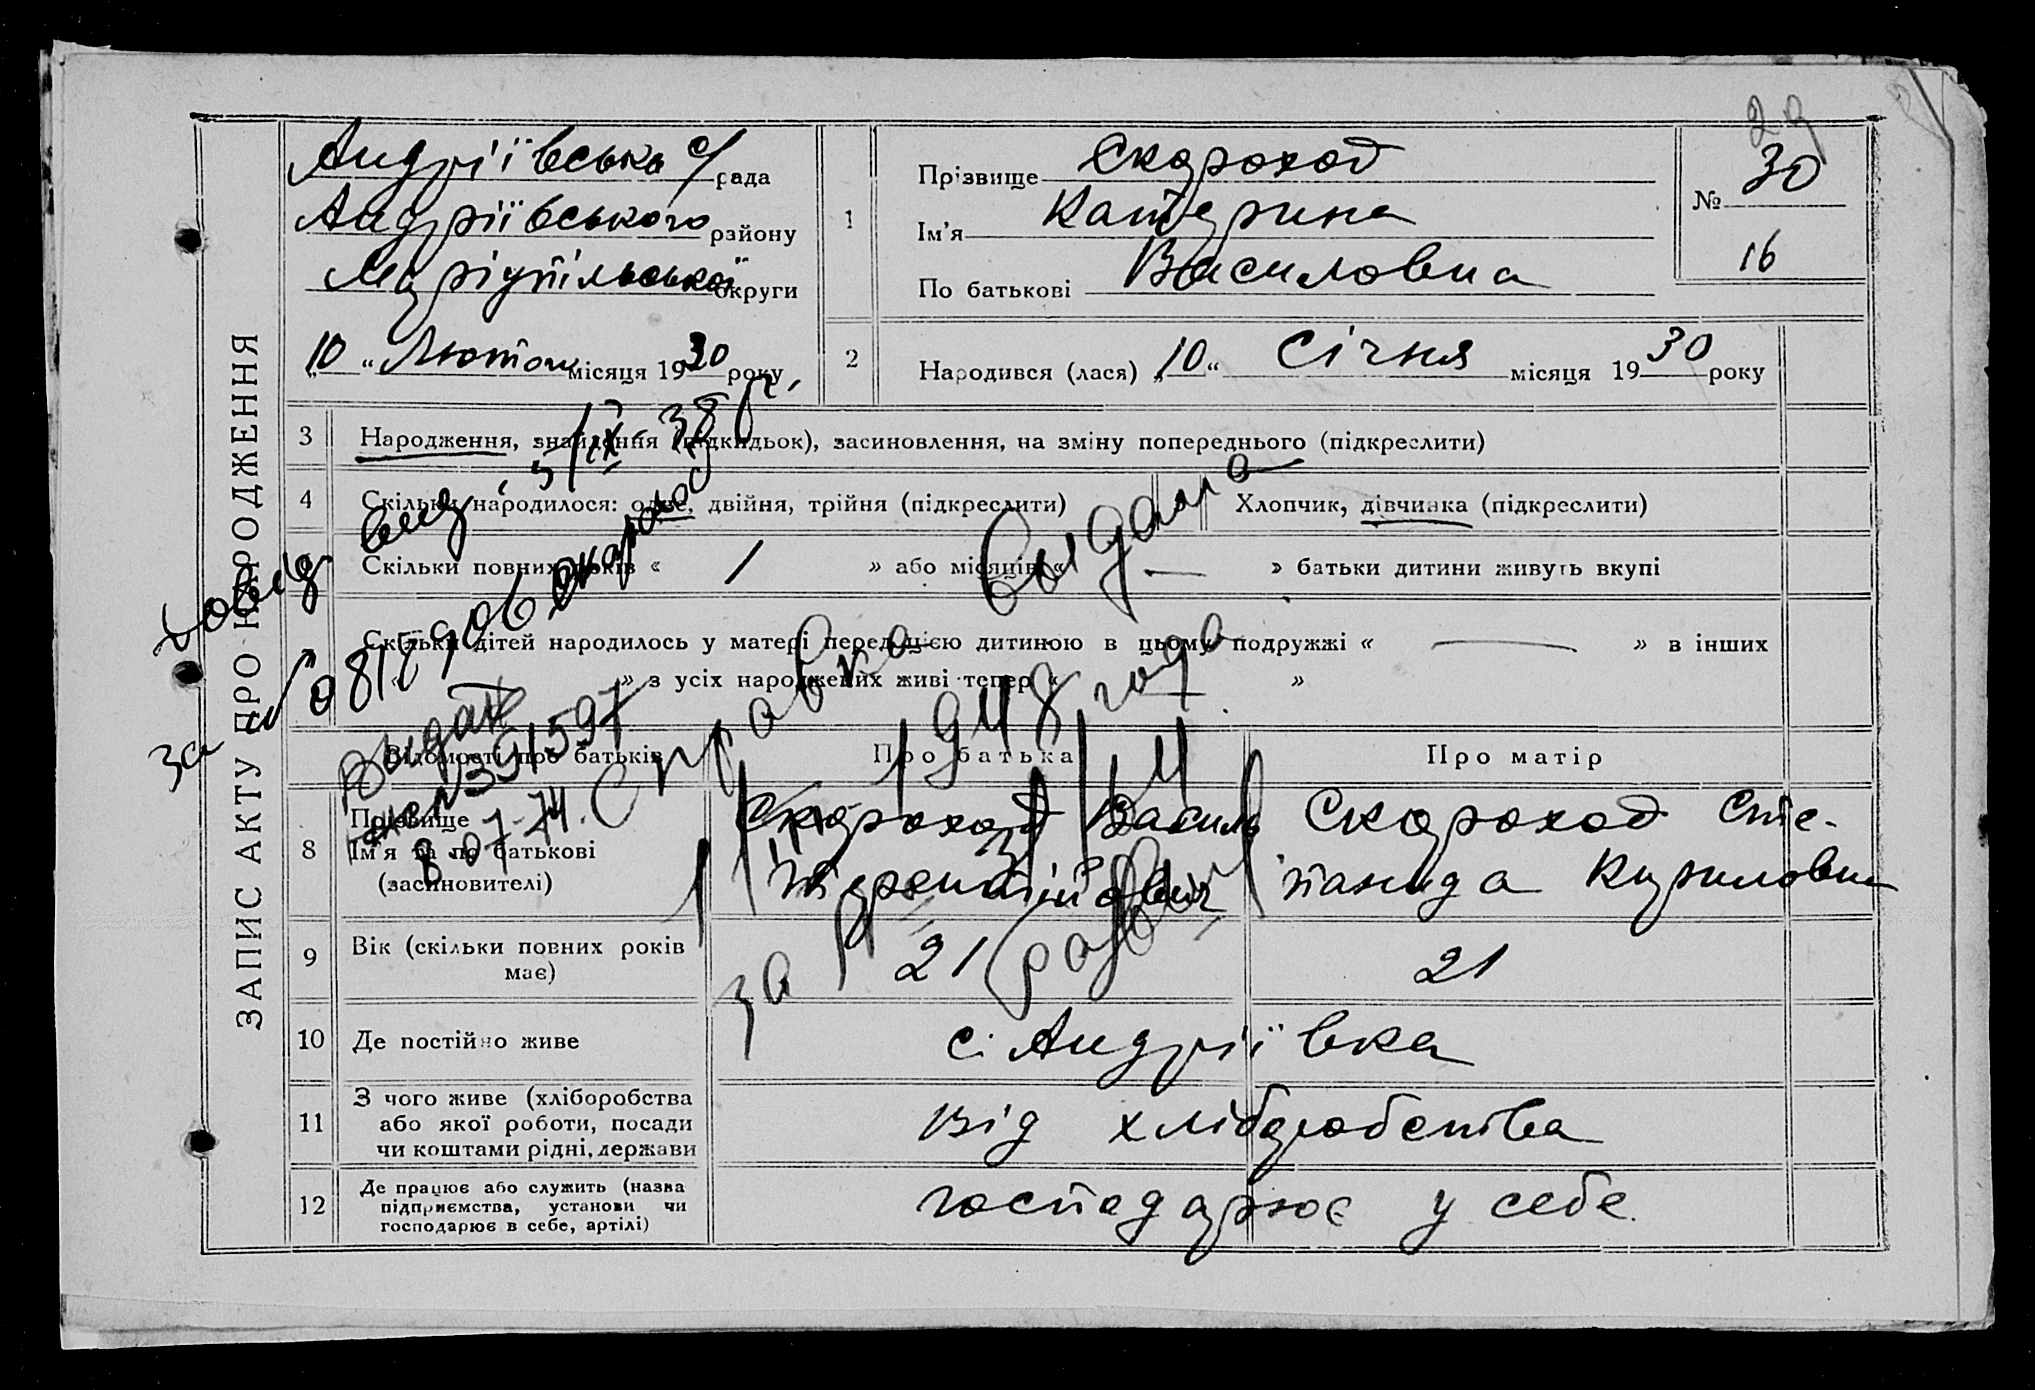 29
ЗАПИС АКТУ ПРО НАРОДЖЕННЯ
Андріївська с/рада
Андріївського району
Маріупільської округи
„10“ Лютого місяця 1930 року
1
Прізвище Скороход
Ім'я Катерина
По батькові Василовна
№ 30
16
2
Народився (лася) „10“ Січня місяця 1930 року
3 Народження, знайдення (підкидьок), засиновлення, на зміну попереднього (підкреслити)
4 Скільки народилося: одне, двійня, трійня (підкреслити) Хлопчик, дівчинка (підкреслити)
Скільки повних років « 1 » або місяців « — » батьки дитини живуть вкупі
Скільки дітей народилось у матері перед цією дитиною в цьому подружжі « — » в інших
« » з усіх народжених живі тепер « — »
Відомості про батьків Про батька Про матір
8 Прізвище
Ім'я та по батькові
(засиновителі)
Скороход Василь
Скороход Сте-
панида Кириловна
9 Вік (скільки повних років має) 21 21
10 Де постійно живе с. Андріївка
11 З чого живе (хліборобства
або якої роботи, посади
чи коштами рідні, держави
від хліборобства
12 Де працює або служить (назва
підприємства, установи чи
господарює в себе, артілі)
господарює у себе
5/IX-38 р.
за № 081
Скороход
Справка выдана
1948 года
за №
Выдан
391597
8-07-74.